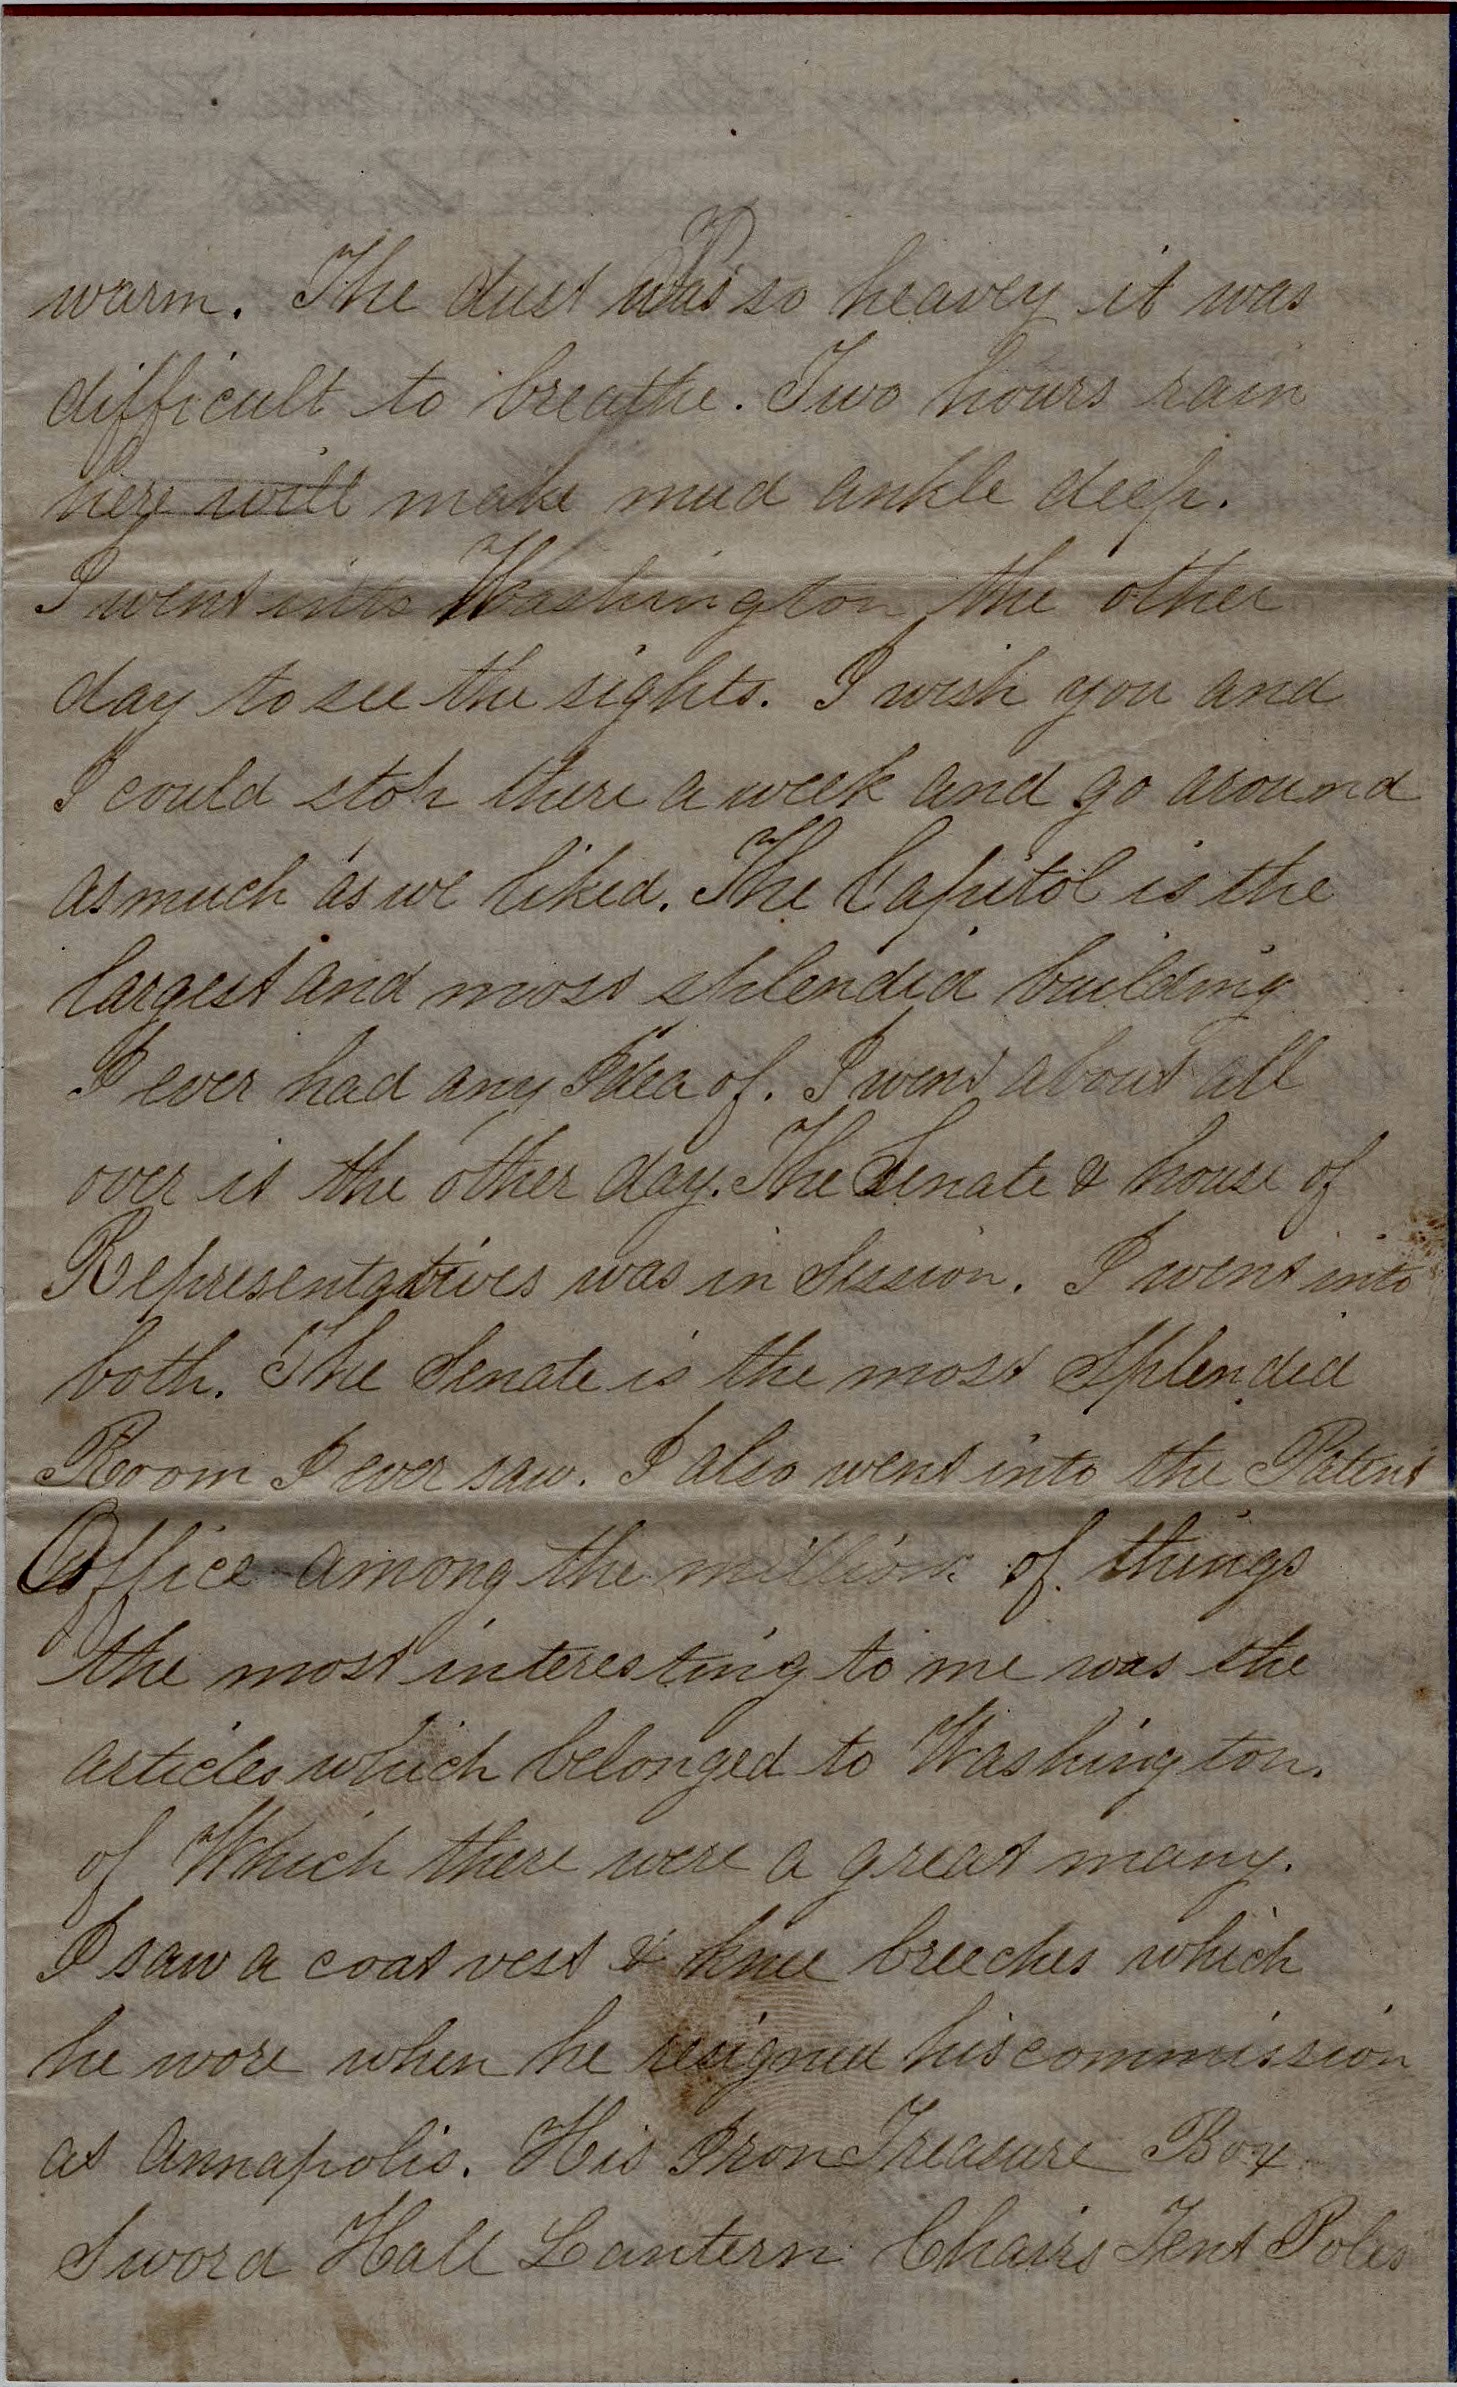 warm. The dust was so heavey it was
difficult to breathe. Two hours rain
here will make mud ankle deep.
I went into Washington the other
day to see the sights. I wish you and
I could stop there a week and go around
as much as we liked. The Capitol is the
largest and most splendid building
I ever had any Idea of. I went about all
over it the other day. The Senate & house of
Representatives was in Session. I went into
both. The Senate is the most Splendid
Room I ever saw. I also went into the Patent
Office among the million of things
the most interesting to me was the
articles which belonged to Washington.
of Which there were a great many.
I saw a coat vest & knee breeches which
he wore when he resigned his commission
at Annapolis. His Iron Treasure Box
Sword Hall Lantern Chairs Tent Poles